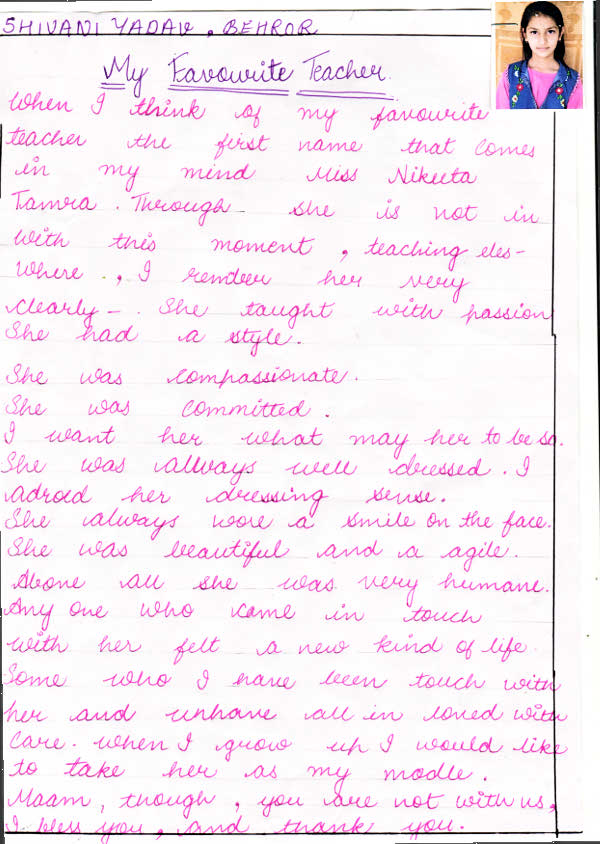 SHIVANI YADAV, BEHROR
My Favourite Teacher.
When I think of my favourite
teacher the first name that comes
in my mind Miss Nikuta
Tamra. Through she is not in
with this moment, teaching eles-
where., I rember her very
clearly-. She taught with passion
She had a style.
She was compassionate.
She was committed.
I want her what may her to be so.
She was allways well dressed. I
adroid her dressing sense.
She always wore a smile on the face.
She was beautiful and a agile.
Above all she was very humane.
Any one who came in touch
with her felt a new kind of life
Some who I have been touch with
her and unhave all in loved with
care. When I grow up I would like
to take her as my modle.
Maam, though, you are not with us,
I bless you, and thank you.